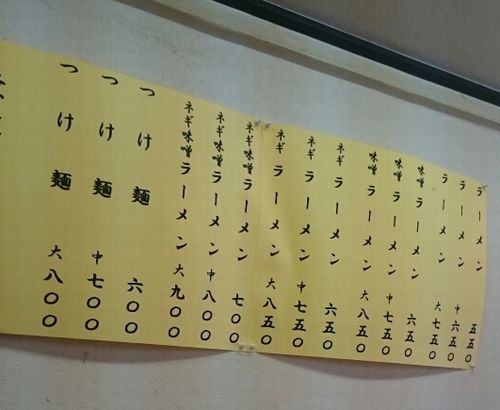 ラーメン 五五〇
ラーメン 中 六五〇
ラーメン 大 七五〇
味噌ラーメン 六五〇
味噌ラーメン 中 七五〇
味噌ラーメン 大 八五〇
ネギラーメン 六五〇
ネギラーメン 中 七五〇
ネギラーメン 大 八五〇
ネギ味噌ラーメン 七〇〇
ネギ味噌ラーメン 中 八〇〇
ネギ味噌ラーメン 大 九〇〇
つけ麺 六〇〇
つけ麺 中 七〇〇
つけ麺 大 八〇〇